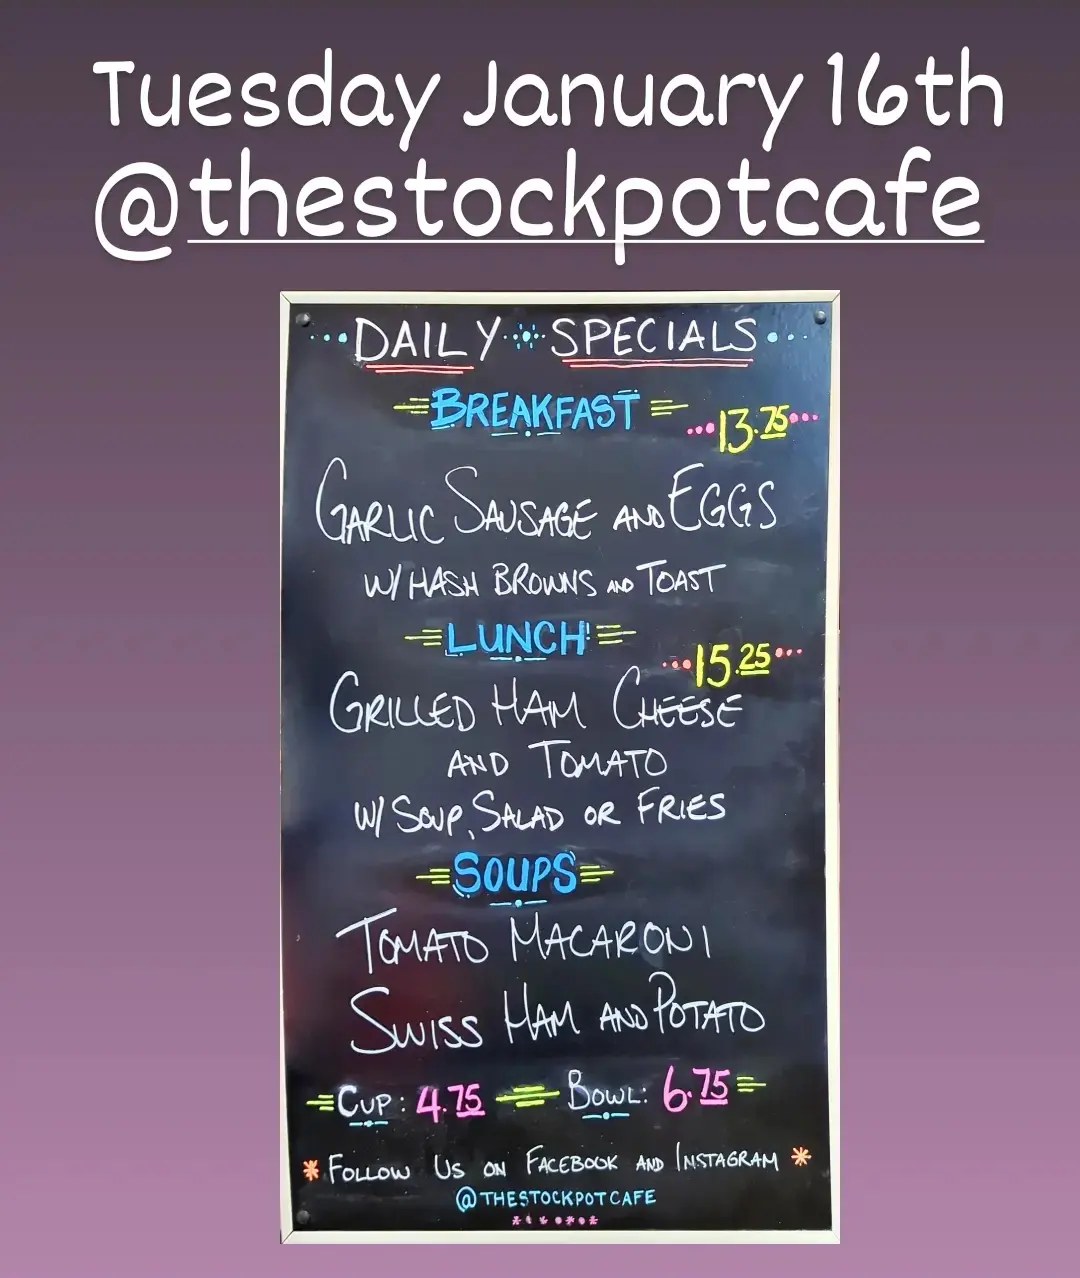 Tuesday January 16th
@thestockpotcafe
DAILY SPECIALS
BREAKFAST
13.75
GARLIC SAUSAGE AND EGGS
W/ HASH BROWNS AND TOAST
LUNCH
15.25
GRILLED HAM CHEESE
AND TOMATO
W/ SOUP, SALAD OR FRIES
SOUPS
TOMATO MACARONI
SWISS HAM AND POTATO
CUP: 4.75 BOWL: 6.75
* FOLLOW US ON FACEBOOK AND INSTAGRAM *
@THESTOCKPOTCAFE